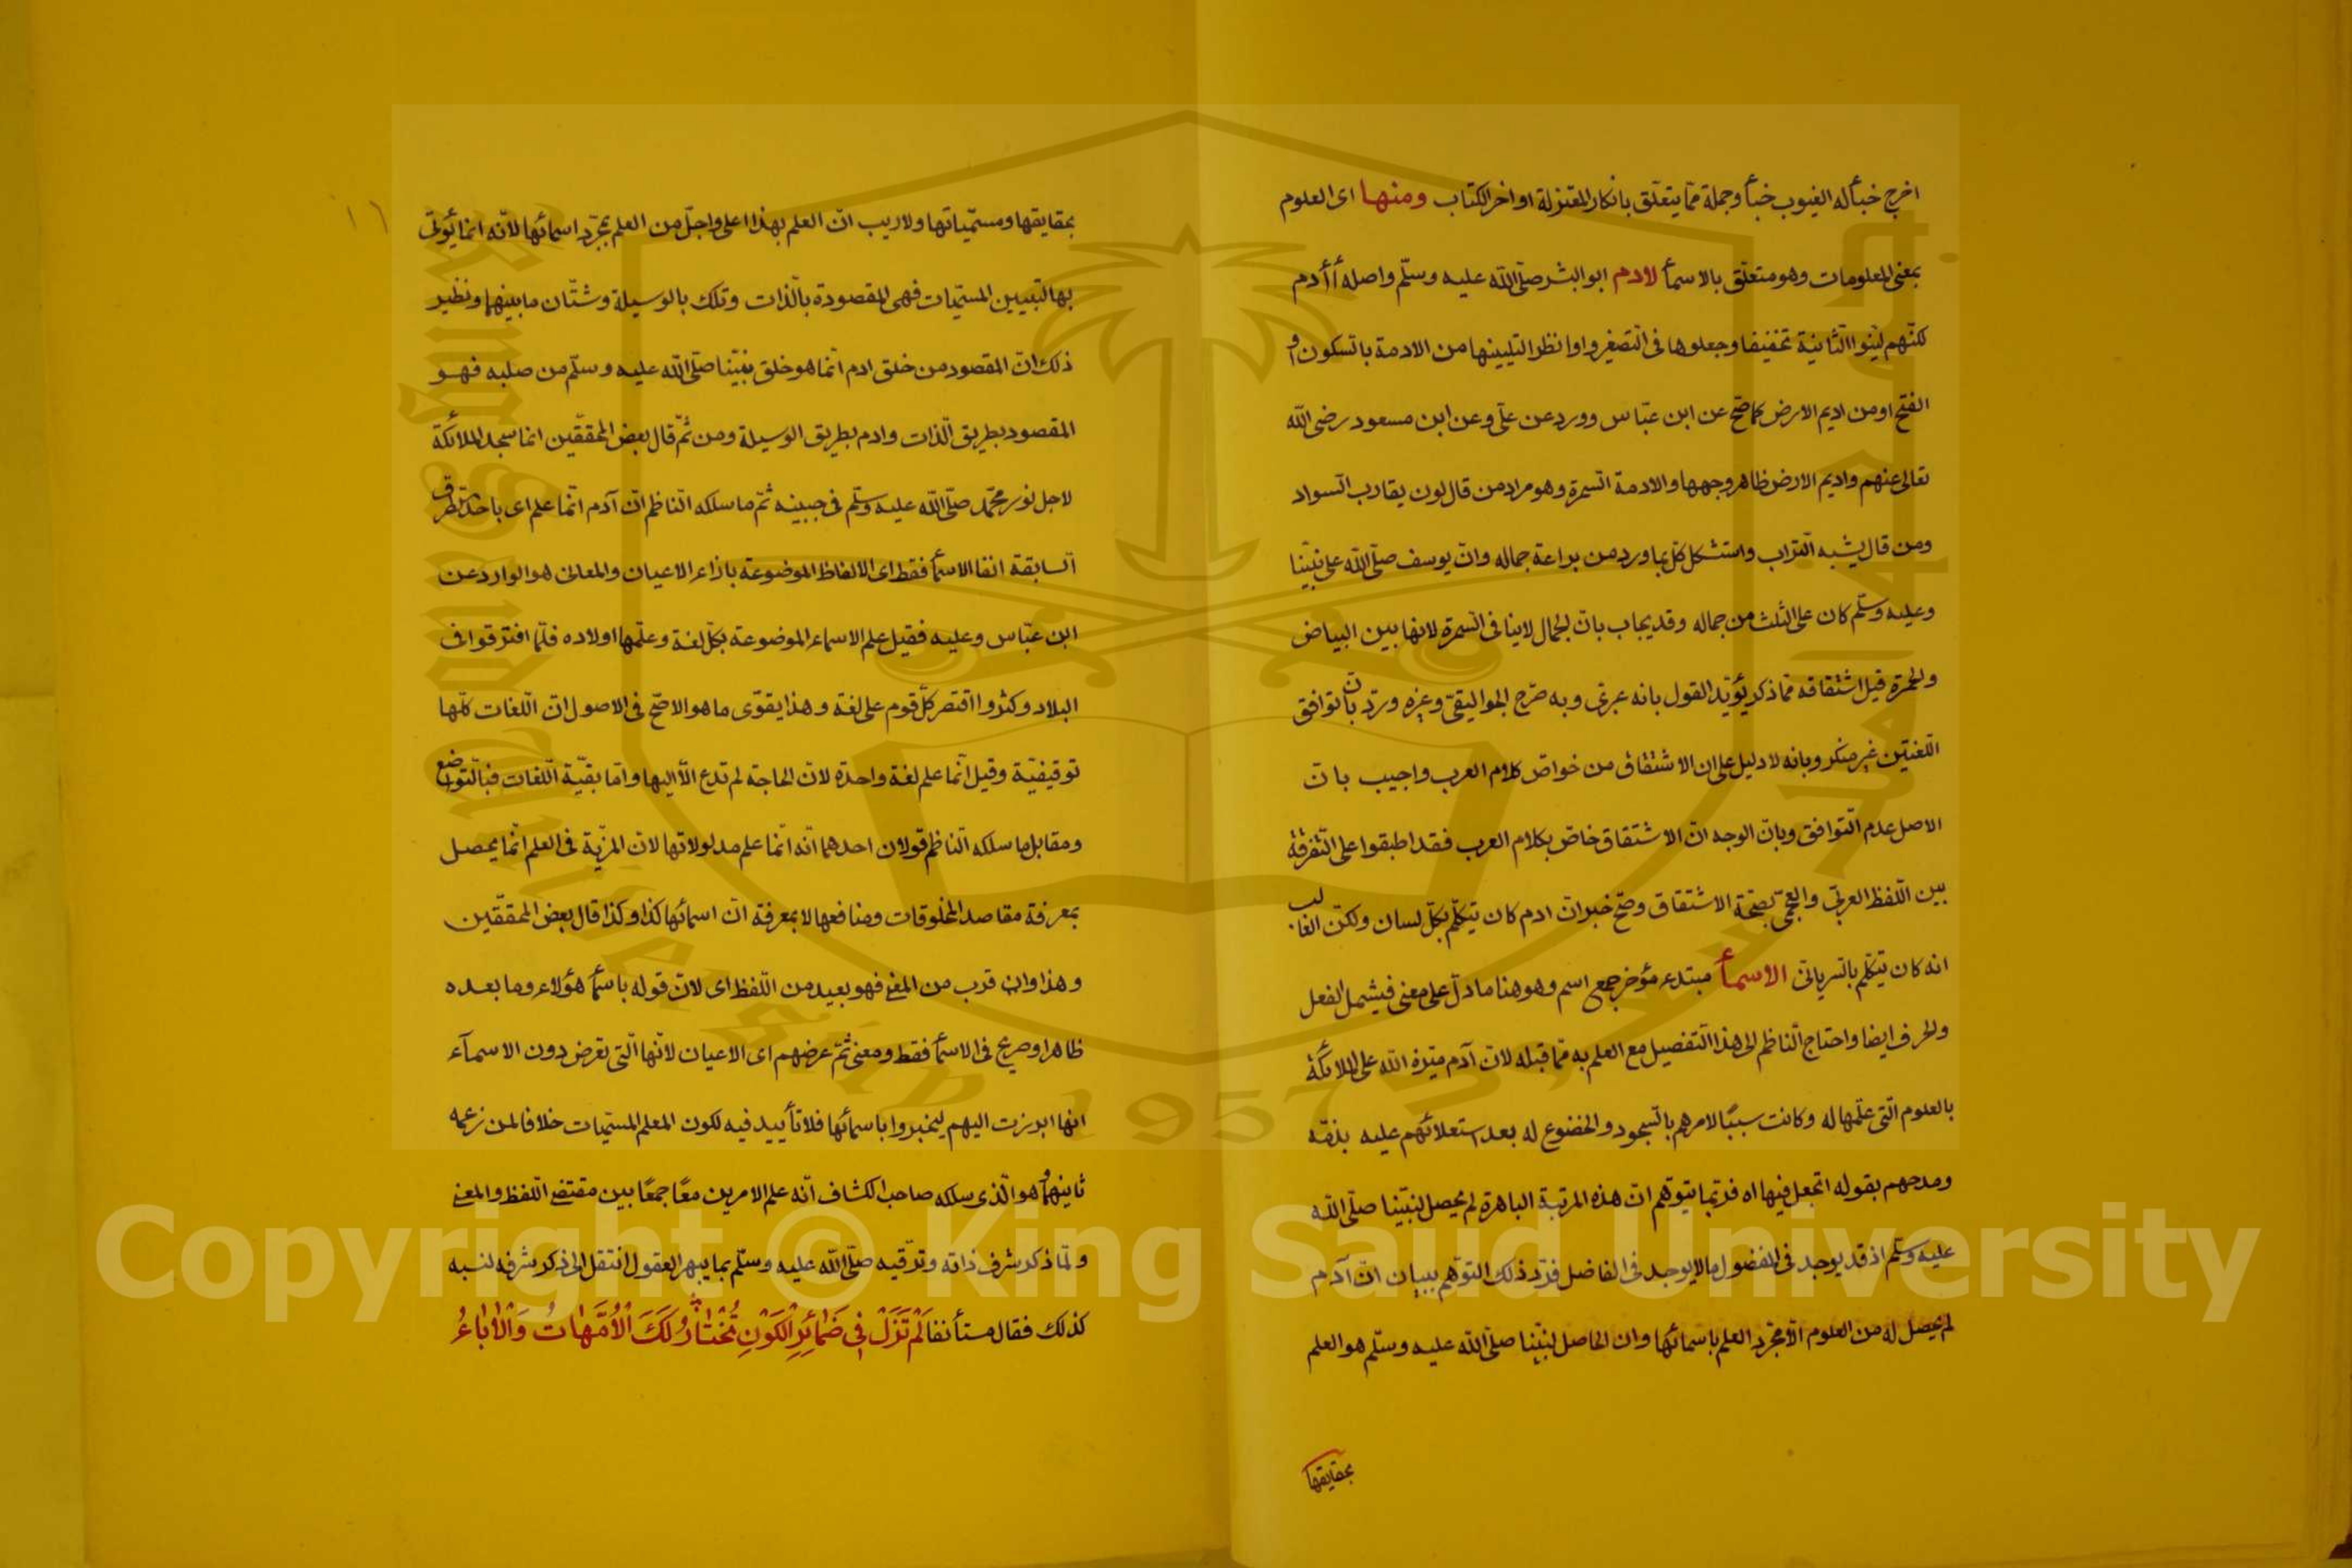 اخرج خبأ له الغيوب خبأ وجملة مما يتعلق بانكار المعتزلة اواخر الكتاب ومنها اى العلوم
بمعنى المعلومات وهو متعلق بالاسمأ لآدم ابو البشر صلى الله عليه وسلم واصله أأدم
لكنهم لينوا الثانية تخفيفا وجعلوها فى التصغير واوا نظرا لتليينها من الادمة بالسكون او
الفتح او من اديم الارض كما صح عن ابن عباس وورد عن على وعن ابن مسعود رضى الله
تعالى عنهم واديم الارض ظاهر وجهها والادمة السمرة وهو مراد من قال لون يقارب السواد
ومن قال يشبه التراب واستشكل كل بما ورد من براعة جماله وان يوسف صلى الله على نبينا
وعليه وسلم كان على الثلث من جماله وقد يجاب بان الجمال لاينافى السمرة لانها بين البياض
والحمرة قيل اشتقاقه مما ذكر يؤيد القول بانه عربى وبه صرح الجواليقى وغيره ورد بان توافق
اللغتين غير منكر وبانه لا دليل على ان الاشتقاق من خواص كلام العرب واجيب بان
الاصل عدم التوافق وبان الوجه ان الاشتقاق خاص بكلام العرب فقد اطبقوا على التفرقة
بين اللفظ العربى والعجمى بصحة الاشتقاق وصح خبر ان ادم كان يتكلم بكل لسان ولكن الغالب
انه كان يتكلم بالسريانى الاسمأ مبتدء مؤخر جمع اسم وهو هنا ما دل على معنى فيشمل الفعل
والحرف ايضا واحتاج الناظم الى هذا التفصيل مع العلم به مما قبله لان آدم ميزه الله على الملائكة
بالعلوم التى علمها له وكانت سببًا لامرهم بالسجود والخضوع له بعد استعلائهم عليه بذمه
ومدحهم بقوله اتجعل فيها اه فربما يتوهم ان هذه المرتبة الباهرة لم يحصل لنبينا صلى الله
عليه وسلم اذ قد يوجد فى المفضول ما لا يوجد فى الفاضل فرد ذلك التوهم ببيان ان آدم
لم يحصل له من العلوم الا مجرد العلم باسمائها وان الحاصل لنبينا صلى الله عليه وسلم هو العلم
بحقايقها
١٦
بحقايقها ومسمياتها ولا ريب ان العلم بهذا اعلى واجل من العلم بمجرد اسمائها لانه انما يؤتى
بها لتبيين المسميات فهى المقصودة بالذات وتلك بالوسيلة وشتان ما بينهما ونظير
ذلك ان المقصود من خلق ادم انما هو خلق نبينا صلى الله عليه وسلم من صلبه فهو
المقصود بطريق الذات وادم بطريق الوسيلة ومن ثم قال بعض المحققين انما سجد الملائكة
لاجل نور محمد صلى الله عليه وسلم فى جبينه ثم ما سلكه الناظم ان آدم انما علم اى باحد الطرق
السابقة انفا الاسمأ فقط اى الالفاظ الموضوعة بازاء الاعيان والمعانى هو الوارد عن
ابن عباس وعليه فقيل علم الاسماء الموضوعة بكل لغة وعلمها اولاده فلما افترقوا فى
البلاد وكثروا اقتصر كل قوم على لغة وهذا يقوى ما هو الاصح فى الاصول ان اللغات كلها
توقيفية وقيل انما علم لغة واحدة لان الحاجة لم تدع الا اليها واما بقية اللغات فبالتواضع
ومقابل ما سلكه الناظم قولان احدهما انه انما علم مدلولاتها لان المزية فى العلم انما يحصل
بمعرفة مقاصد المخلوقات ومنافعها لا بمعرفة ان اسمائها كذا وكذا قال بعض المحققين
وهذا وان قرب من المعنى فهو بعيد من اللفظ اى لان قوله باسمأ هؤلاء وما بعده
ظاهر او صريح فى الاسمأ فقط ومعنى ثم عرضهم اى الاعيان لانها التى تعرض دون الاسمآء
انها ابرزت اليهم ليخبروا باسمائها فلا تأييد فيه لكون المعلم المسميات خلافا لمن زعمه
ثانيهما وهو الذى سلكه صاحب الكشاف انه علم الامرين معًا جمعًا بين مقتضى اللفظ والمعنى
ولما ذكر شرف ذاته وترقيه صلى الله عليه وسلم بما يبهر العقول انتقل الى ذكر شرفه لنسبه
كذلك فقال مستأنفا لَمْ تَزَلْ فِي ضَمَائِرِ الْكَوْنِ تُخْتَارُ لَكَ الْأُمَّهَاتُ وَالْأَبَاءُ
Copyright © King Saud University
King Saud University 1957